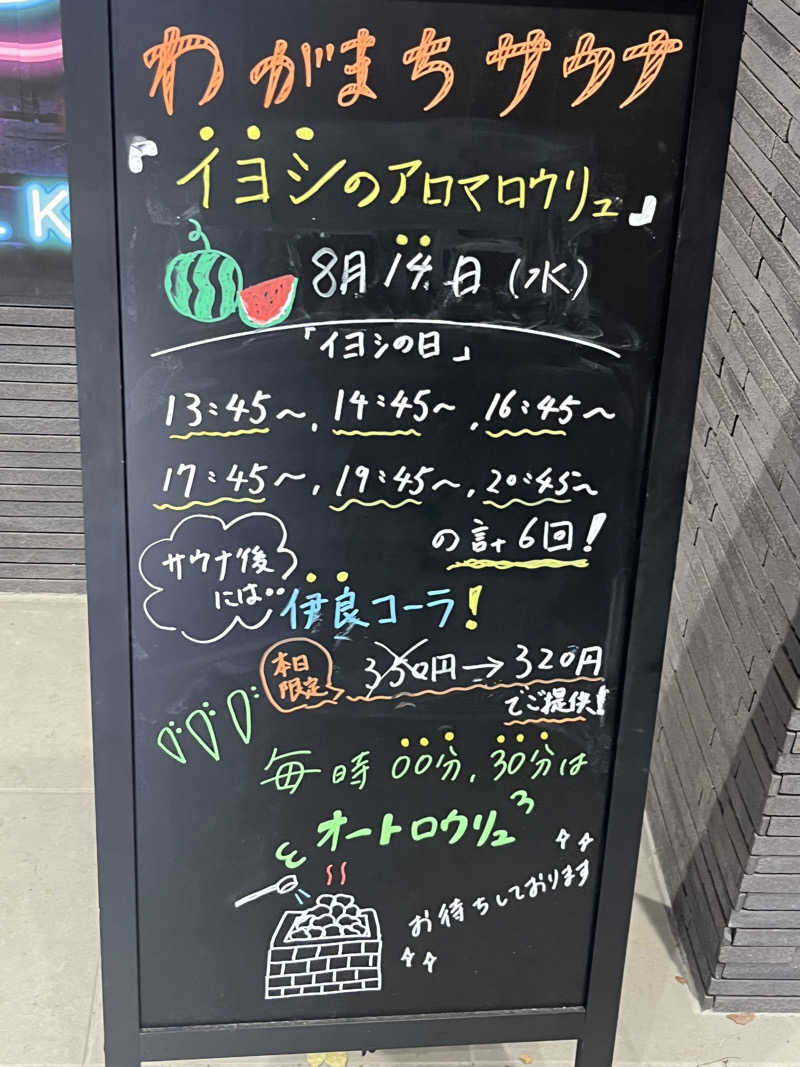 わがまちサウナ
『イヨシのアロマロウリュ』
8月14日(水)
「イヨシの日」
13:45〜, 14:45〜, 16:45〜
17:45〜, 19:45〜, 20:45〜
の計6回!
サウナ後
には‥
伊良コーラ!
本日
限定
350円→320円
でご提供!!
毎時00分, 30分は
オートロウリュ
お待ちしております
K